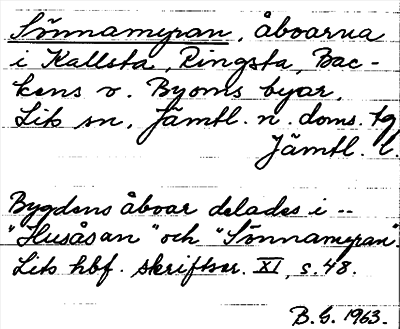 Sönnamyran, åboarna
i Kallsta, Ringsta, Bac-
kens o. Byoms byar,
Lits sn, Jämtl. n. doms. tg
Jämtl. l.
Bygdens åboar delades i --
"Husåsan" och "Sönnamyran".
Lits hbf. skriftser. XI, s. 48.
B. G. 1963.